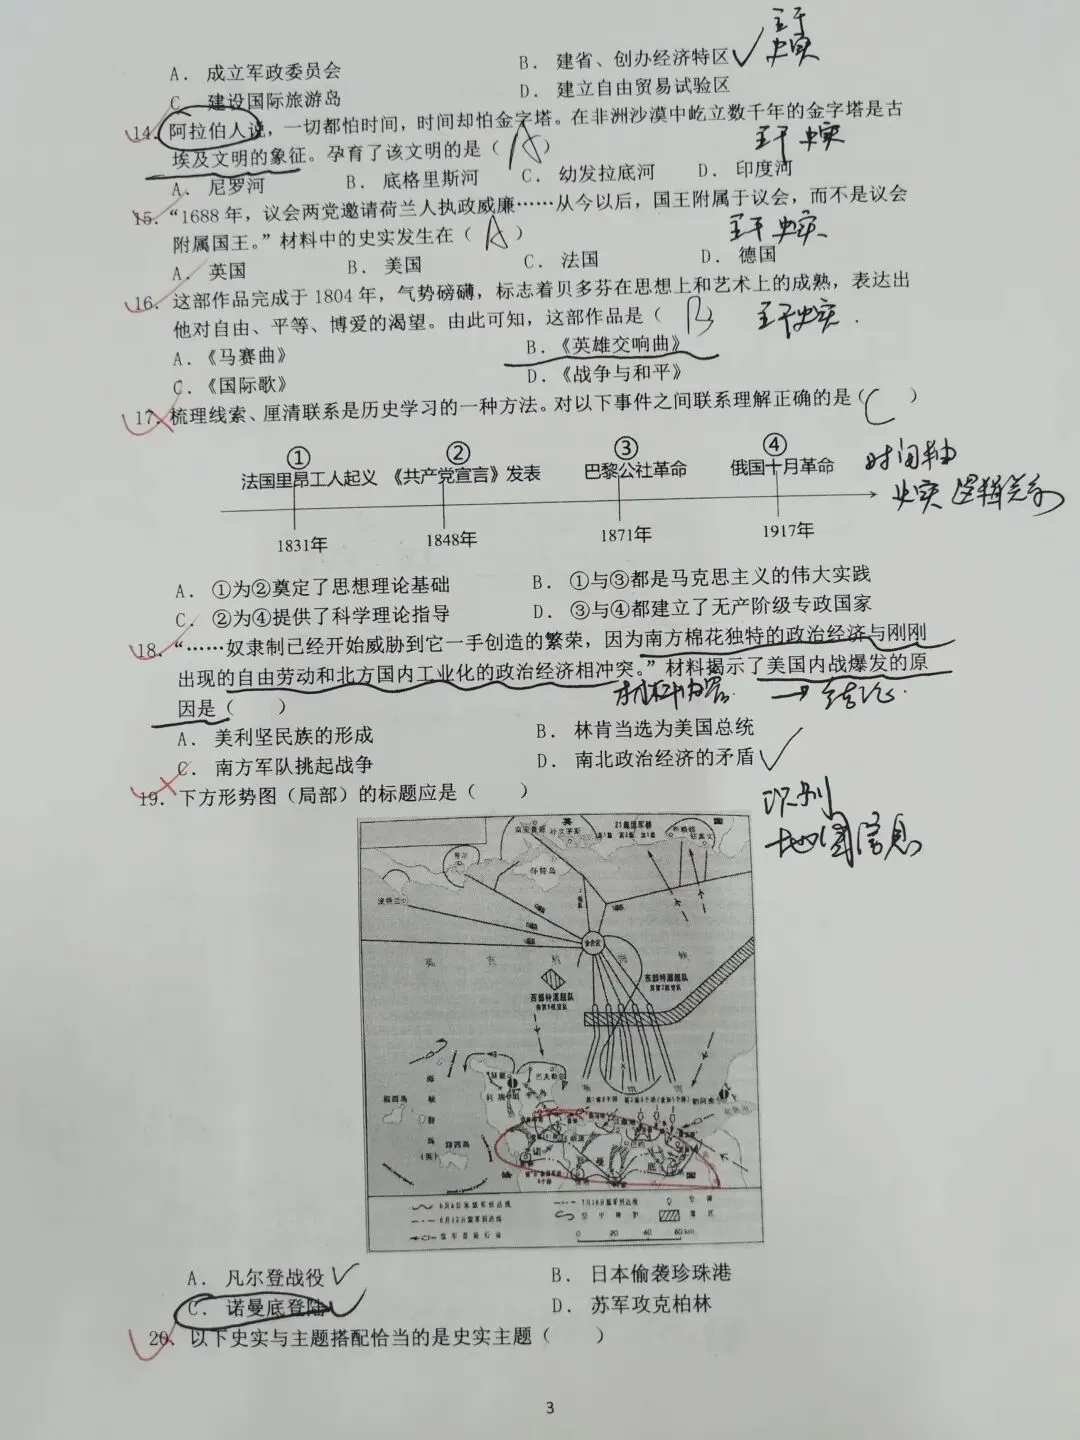 A. 成立军政委员会
B. 建省、创办经济特区
主干史实
C. 建设国际旅游岛
D. 建立自由贸易试验区
14. 阿拉伯人说，一切都怕时间，时间却怕金字塔。在非洲沙漠中屹立数千年的金字塔是古
埃及文明的象征。孕育了该文明的是（ A ）
主干史实
A. 尼罗河 B. 底格里斯河 C. 幼发拉底河 D. 印度河
15. “1688年，议会两党邀请荷兰人执政威廉……从今以后，国王附属于议会，而不是议会
附属国王。”材料中的史实发生在（ A ）
主干史实
A. 英国 B. 美国 C. 法国 D. 德国
16. 这部作品完成于1804年，气势磅礴，标志着贝多芬在思想上和艺术上的成熟，表达出
他对自由、平等、博爱的渴望。由此可知，这部作品是（ B
主干史实.
A.《马赛曲》 B.《英雄交响曲》
C.《国际歌》 D.《战争与和平》
17. 梳理线索、厘清联系是历史学习的一种方法。对以下事件之间联系理解正确的是（ C ）
① ② ③ ④
法国里昂工人起义 《共产党宣言》发表 巴黎公社革命 俄国十月革命
时间轴
史实 逻辑关系
1831年 1848年 1871年 1917年
A. ①为②奠定了思想理论基础 B. ①与③都是马克思主义的伟大实践
C. ②为④提供了科学理论指导 D. ③与④都建立了无产阶级专政国家
18. “……奴隶制已经开始威胁到它一手创造的繁荣，因为南方棉花独特的政治经济与刚刚
出现的自由劳动和北方国内工业化的政治经济相冲突。”材料揭示了美国内战爆发的原
因是（ ）
材料内容. → 结论.
A. 美利坚民族的形成 B. 林肯当选为美国总统
C. 南方军队挑起战争 D. 南北政治经济的矛盾
19. 下方形势图（局部）的标题应是（ ）
识别
地图信息
英 国
21集团军群
怀特岛
波特兰
会合区
东部特混舰队
西部特混舰队
瑟堡
根西岛
泽西岛
(英)
勒阿弗尔
诺 曼 底
法 国
0 20 40 60 km
A. 凡尔登战役 B. 日本偷袭珍珠港
C. 诺曼底登陆 D. 苏军攻克柏林
20. 以下史实与主题搭配恰当的是史实主题（ ）
3